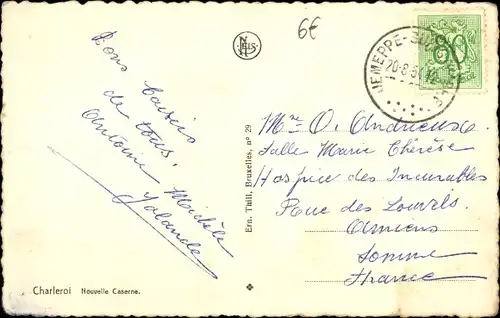 6€
Bons baisers
de tous.
Antoine Michèle
Yolande
Charleroi Nouvelle Caserne.
Ern. Thill, Bruxelles, n° 29
NELS
JEMEPPE-SUR-
20-8-5
80
Mme O. Andrieux
Salle Marie Thérèse
Hospice des Incurables
Rue des Louvels
Amiens
Somme
France